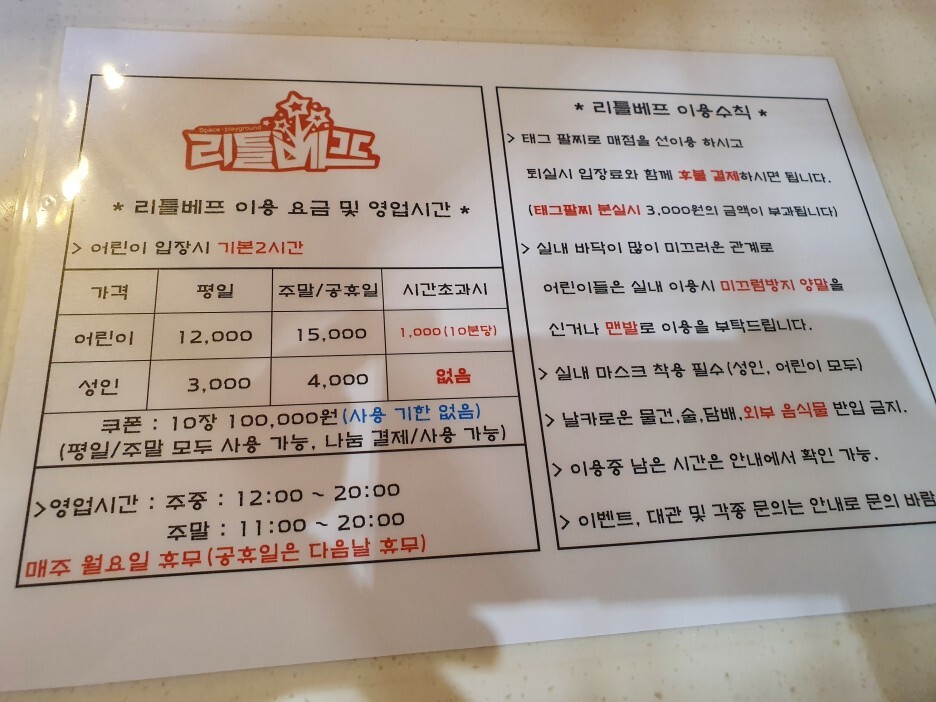 Space playground
리틀베프
* 리틀베프 이용 요금 및 영업시간 *
> 어린이 입장시 기본2시간
가격 평일 주말/공휴일 시간초과시
어린이 12,000 15,000 1,000(10분당)
성인 3,000 4,000 없음
쿠폰 : 10장 100,000원(사용 기한 없음)
(평일/주말 모두 사용 가능, 나눔 결제/사용 가능)
>영업시간 : 주중 : 12:00 ~ 20:00
주말 : 11:00 ~ 20:00
매주 월요일 휴무(공휴일은 다음날 휴무)
* 리틀베프 이용수칙 *
> 태그 팔찌로 매점을 선이용 하시고
퇴실시 입장료와 함께 후불 결제하시면 됩니다.
(태그팔찌 분실시 3,000원의 금액이 부과됩니다)
> 실내 바닥이 많이 미끄러운 관계로
어린이들은 실내 이용시 미끄럼방지 양말을
신거나 맨발로 이용을 부탁드립니다.
> 실내 마스크 착용 필수(성인, 어린이 모두)
> 날카로운 물건,술,담배,외부 음식물 반입 금지.
> 이용중 남은 시간은 안내에서 확인 가능.
> 이벤트, 대관 및 각종 문의는 안내로 문의 바람